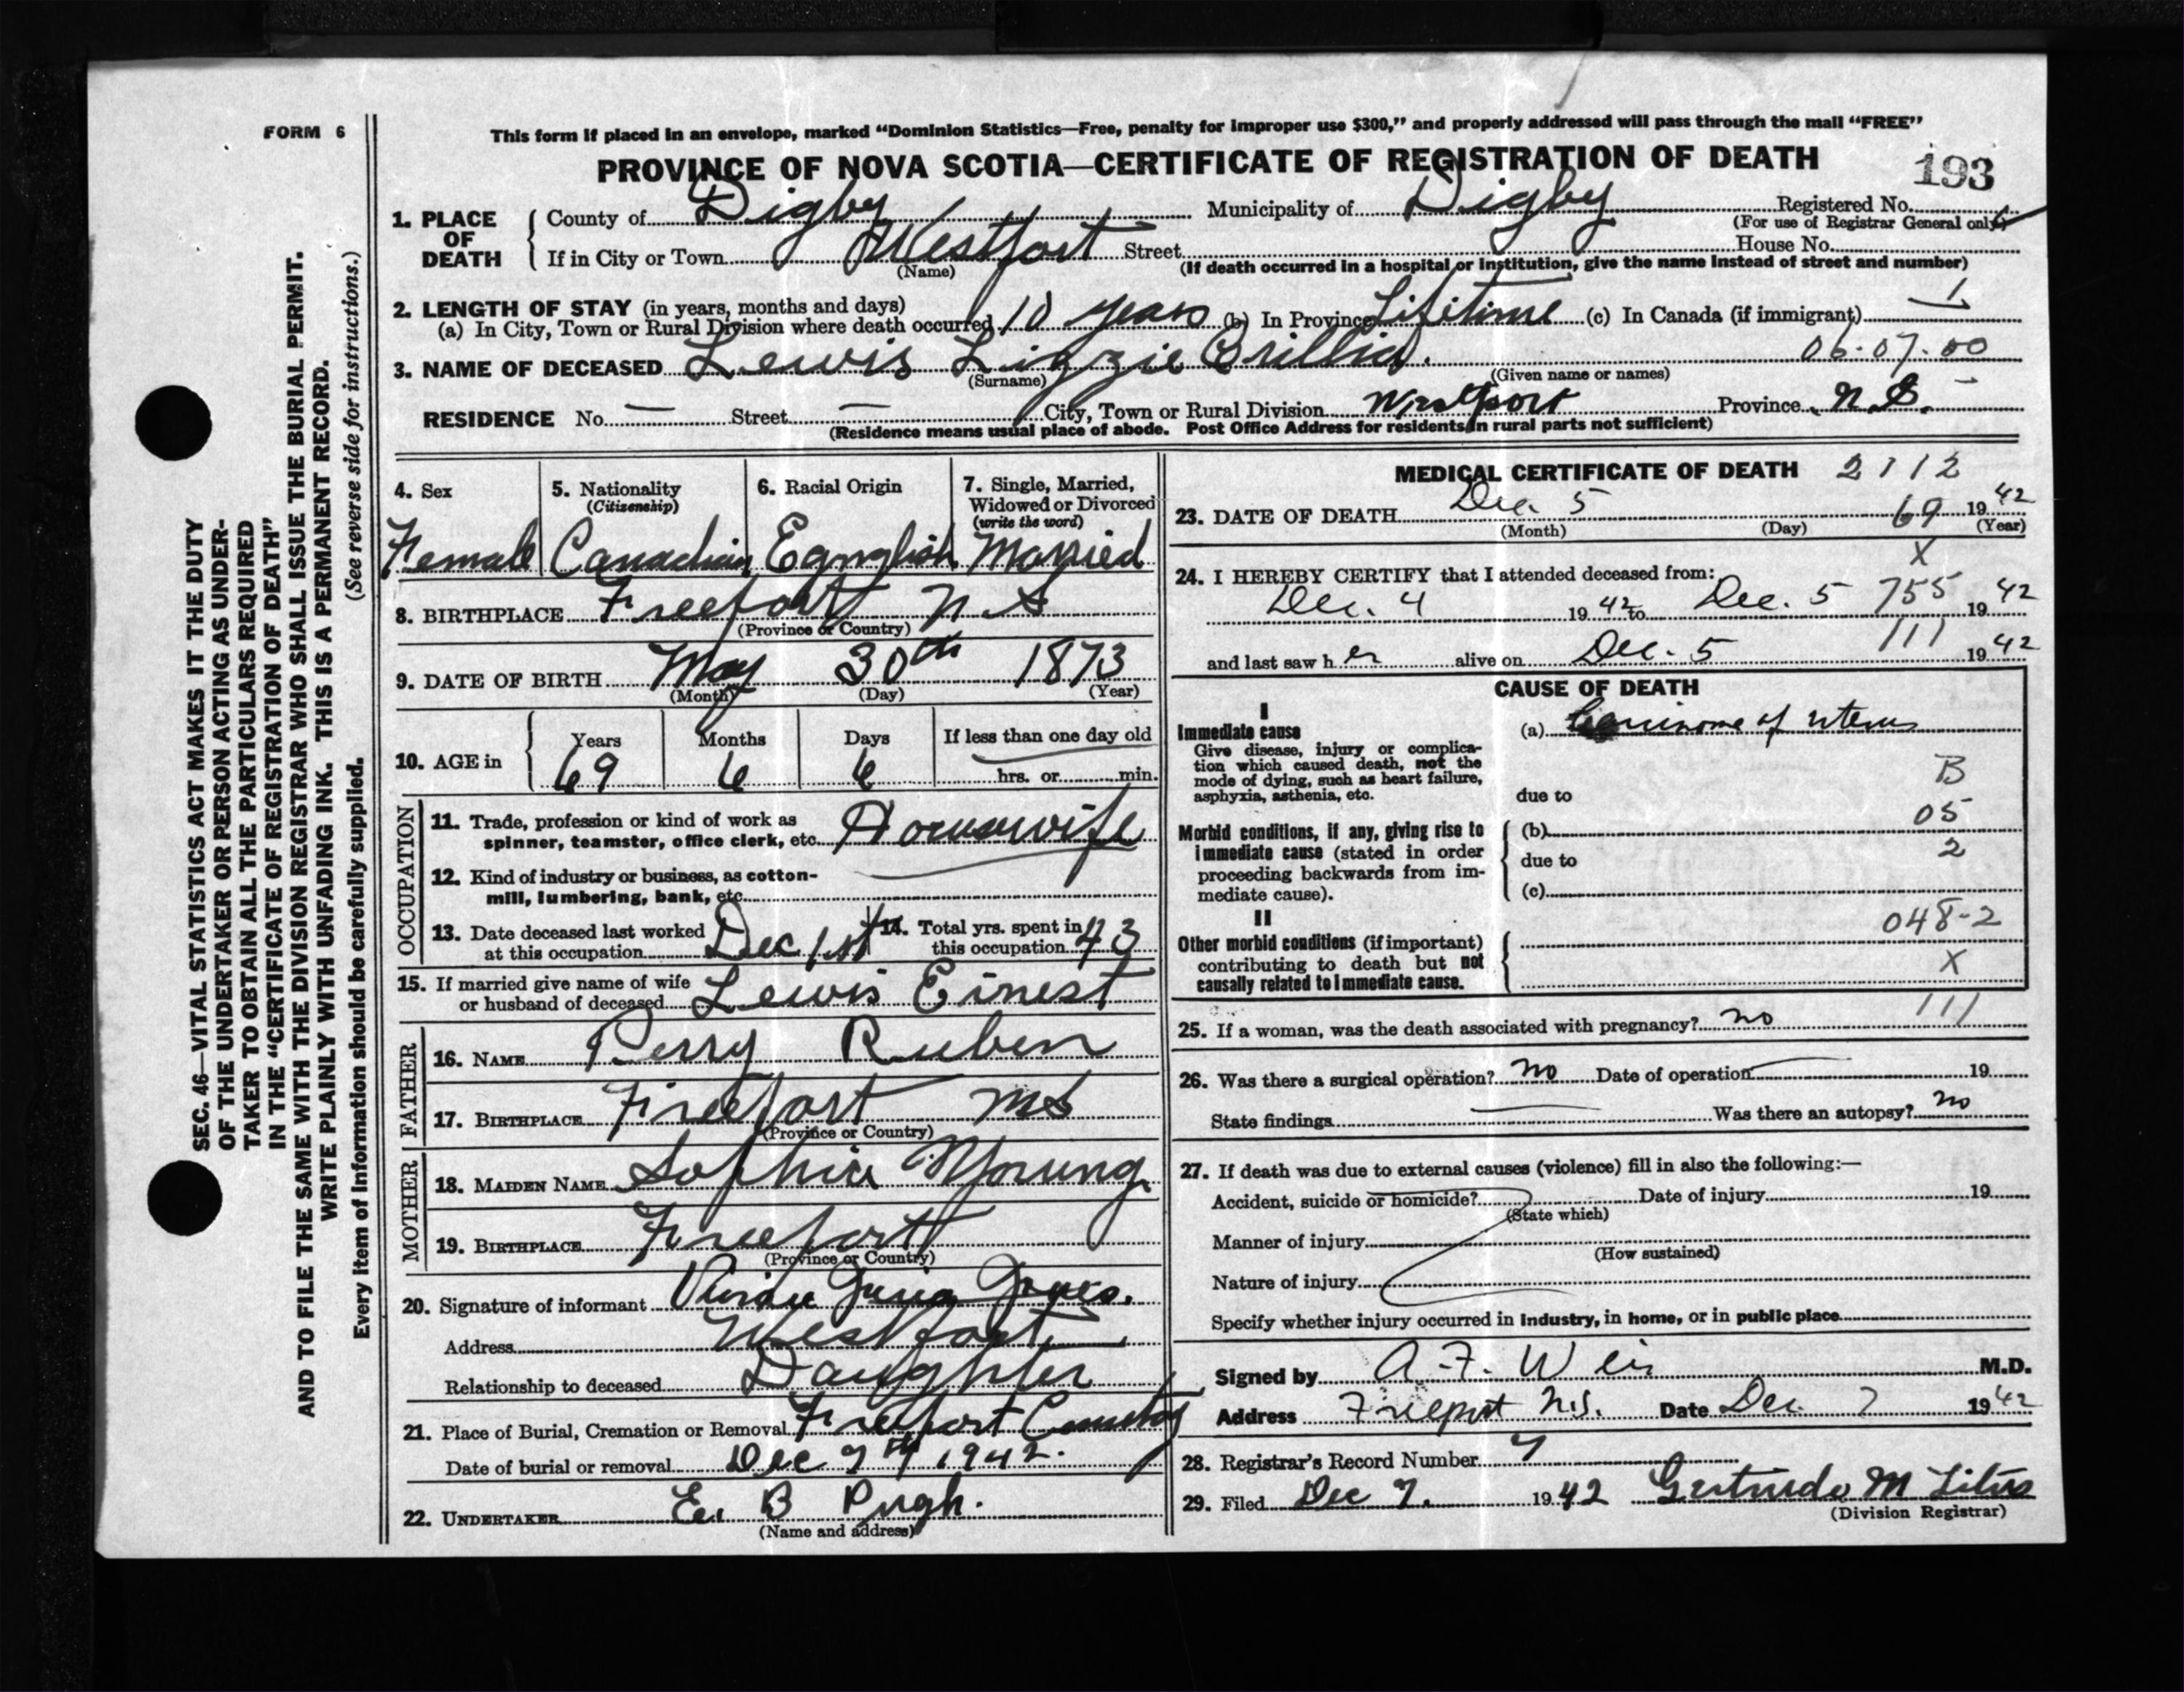 FORM 6
This form if placed in an envelope, marked “Dominion Statistics—Free, penalty for improper use $300,” and properly addressed will pass through the mail “FREE”
PROVINCE OF NOVA SCOTIA—CERTIFICATE OF REGISTRATION OF DEATH 193
1. PLACE OF DEATH
County of Digby Municipality of Digby Registered No.
(For use of Registrar General only)
If in City or Town Westport Street House No.
(Name) (If death occurred in a hospital or institution, give the name instead of street and number)
2. LENGTH OF STAY (in years, months and days)
(a) In City, Town or Rural Division where death occurred 10 years (b) In Province Lifetime (c) In Canada (if immigrant) 1
3. NAME OF DECEASED Lewis Lizzie 06-07-00
(Surname) (Given name or names)
RESIDENCE No. — Street — City, Town or Rural Division Westport Province N.S.
(Residence means usual place of abode. Post Office Address for residents in rural parts not sufficient)
4. Sex
Female
5. Nationality
(Citizenship)
Canadian
6. Racial Origin
Egnglish
7. Single, Married,
Widowed or Divorced
(write the word)
Married
8. BIRTHPLACE Freeport N S
(Province or Country)
9. DATE OF BIRTH May 30th 1873
(Month) (Day) (Year)
10. AGE in
Years Months Days If less than one day old
69 6 6 hrs. or min.
OCCUPATION
11. Trade, profession or kind of work as
spinner, teamster, office clerk, etc. Housewife
12. Kind of industry or business, as cotton-
mill, lumbering, bank, etc.
13. Date deceased last worked
at this occupation Dec 1st
14. Total yrs. spent in
this occupation 43
15. If married give name of wife
or husband of deceased Lewis Ernest
FATHER
16. NAME Perry Ruben
17. BIRTHPLACE Freeport NS
(Province or Country)
MOTHER
18. MAIDEN NAME Sophia Young
19. BIRTHPLACE Freeport
(Province or Country)
20. Signature of informant
Address Westport
Relationship to deceased Daughter
21. Place of Burial, Cremation or Removal Freeport Cemetery
Date of burial or removal Dec 7th 1942.
22. UNDERTAKER E. B Pugh.
(Name and address)
MEDICAL CERTIFICATE OF DEATH 2112
23. DATE OF DEATH Dec. 5 69 1942
(Month) (Day) (Year)
X
24. I HEREBY CERTIFY that I attended deceased from:
Dec. 4 1942 to Dec. 5 755 1942
111
and last saw her alive on Dec. 5 1942
CAUSE OF DEATH
I
Immediate cause
Give disease, injury or complica-
tion which caused death, not the
mode of dying, such as heart failure,
asphyxia, asthenia, etc.
(a) Carcinoma of uterus
B
due to
05
Morbid conditions, if any, giving rise to
immediate cause (stated in order
proceeding backwards from im-
mediate cause).
(b)
2
due to
(c)
II
Other morbid conditions (if important)
contributing to death but not
causally related to immediate cause.
048-2
X
111
25. If a woman, was the death associated with pregnancy? no
26. Was there a surgical operation? no Date of operation 19
State findings Was there an autopsy? no
27. If death was due to external causes (violence) fill in also the following:—
Accident, suicide or homicide? Date of injury 19
(State which)
Manner of injury
(How sustained)
Nature of injury
Specify whether injury occurred in industry, in home, or in public place
Signed by A. F. Weir M.D.
Address Freeport N.S. Date Dec. 7 1942
28. Registrar's Record Number 7
29. Filed Dec 7. 1942 Gertrude M Titus
(Division Registrar)
SEC. 46—VITAL STATISTICS ACT MAKES IT THE DUTY
OF THE UNDERTAKER OR PERSON ACTING AS UNDER-
TAKER TO OBTAIN ALL THE PARTICULARS REQUIRED
IN THE “CERTIFICATE OF REGISTRATION OF DEATH”
AND TO FILE THE SAME WITH THE DIVISION REGISTRAR WHO SHALL ISSUE THE BURIAL PERMIT.
WRITE PLAINLY WITH UNFADING INK. THIS IS A PERMANENT RECORD.
Every item of information should be carefully supplied. (See reverse side for instructions.)